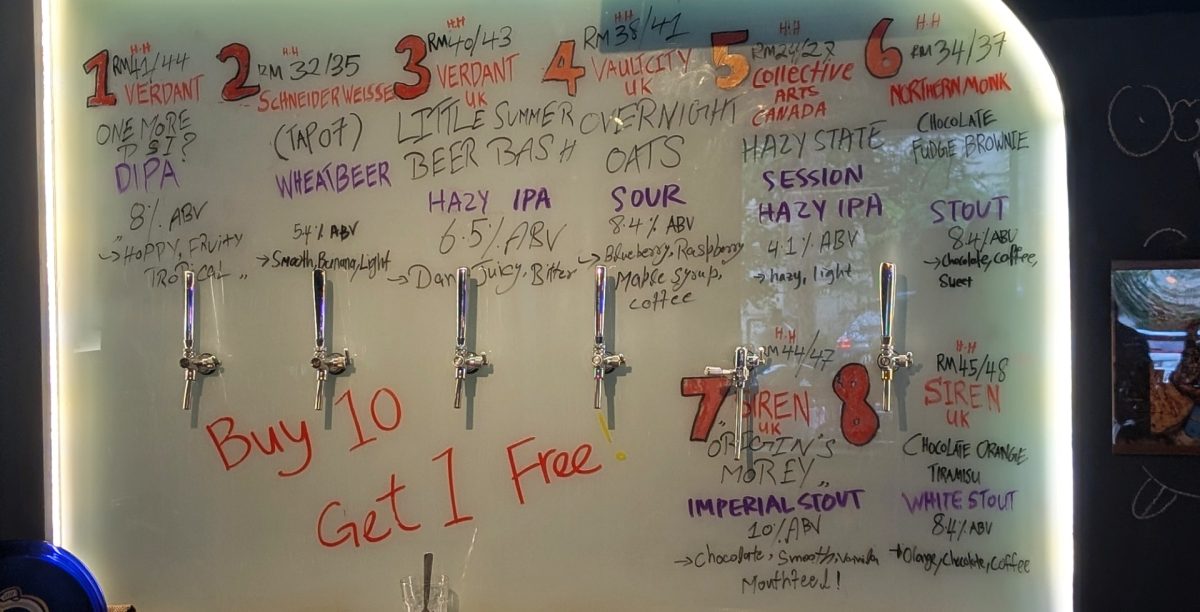 1
H·H
RM41/44
VERDANT
ONE MORE
PSI?
DIPA
8% ABV
"HOPPY, FRUITY
TROPICAL"
2
H·H
RM 32/35
SCHNEIDER WEISSE
(TAP07)
WHEATBEER
5.4% ABV
→ Smooth, Banana, Light
3
H·H
RM40/43
VERDANT
UK
LITTLE SUMMER
BEER BASH
HAZY IPA
6.5% ABV
→ Dank, Juicy, Bitter
4
H·H
RM38/41
VAULTCITY
UK
OVERNIGHT
OATS
SOUR
8.4% ABV
→ Blueberry, Raspberry
Maple Syrup,
coffee
5
H·H
RM24/27
Collective
ARTS
CANADA
HAZY STATE
SESSION
HAZY IPA
4.1% ABV
→ hazy, light
6
H·H
RM34/37
NORTHERN MONK
CHOCOLATE
FUDGE BROWNIE
STOUT
8.4% ABV
→ Chocolate, Coffee,
Sweet
7
H·H
RM44/47
SIREN
UK
"ORIGIN'S
MOREY"
IMPERIAL STOUT
10% ABV
→ Chocolate, Smooth, Vanilla
Mouthfeel!
8
H·H
RM45/48
SIREN
UK
CHOCOLATE ORANGE
TIRAMISU
WHITE STOUT
8.4% ABV
→ Orange, Chocolate, Coffee
Buy 10
Get 1 Free!